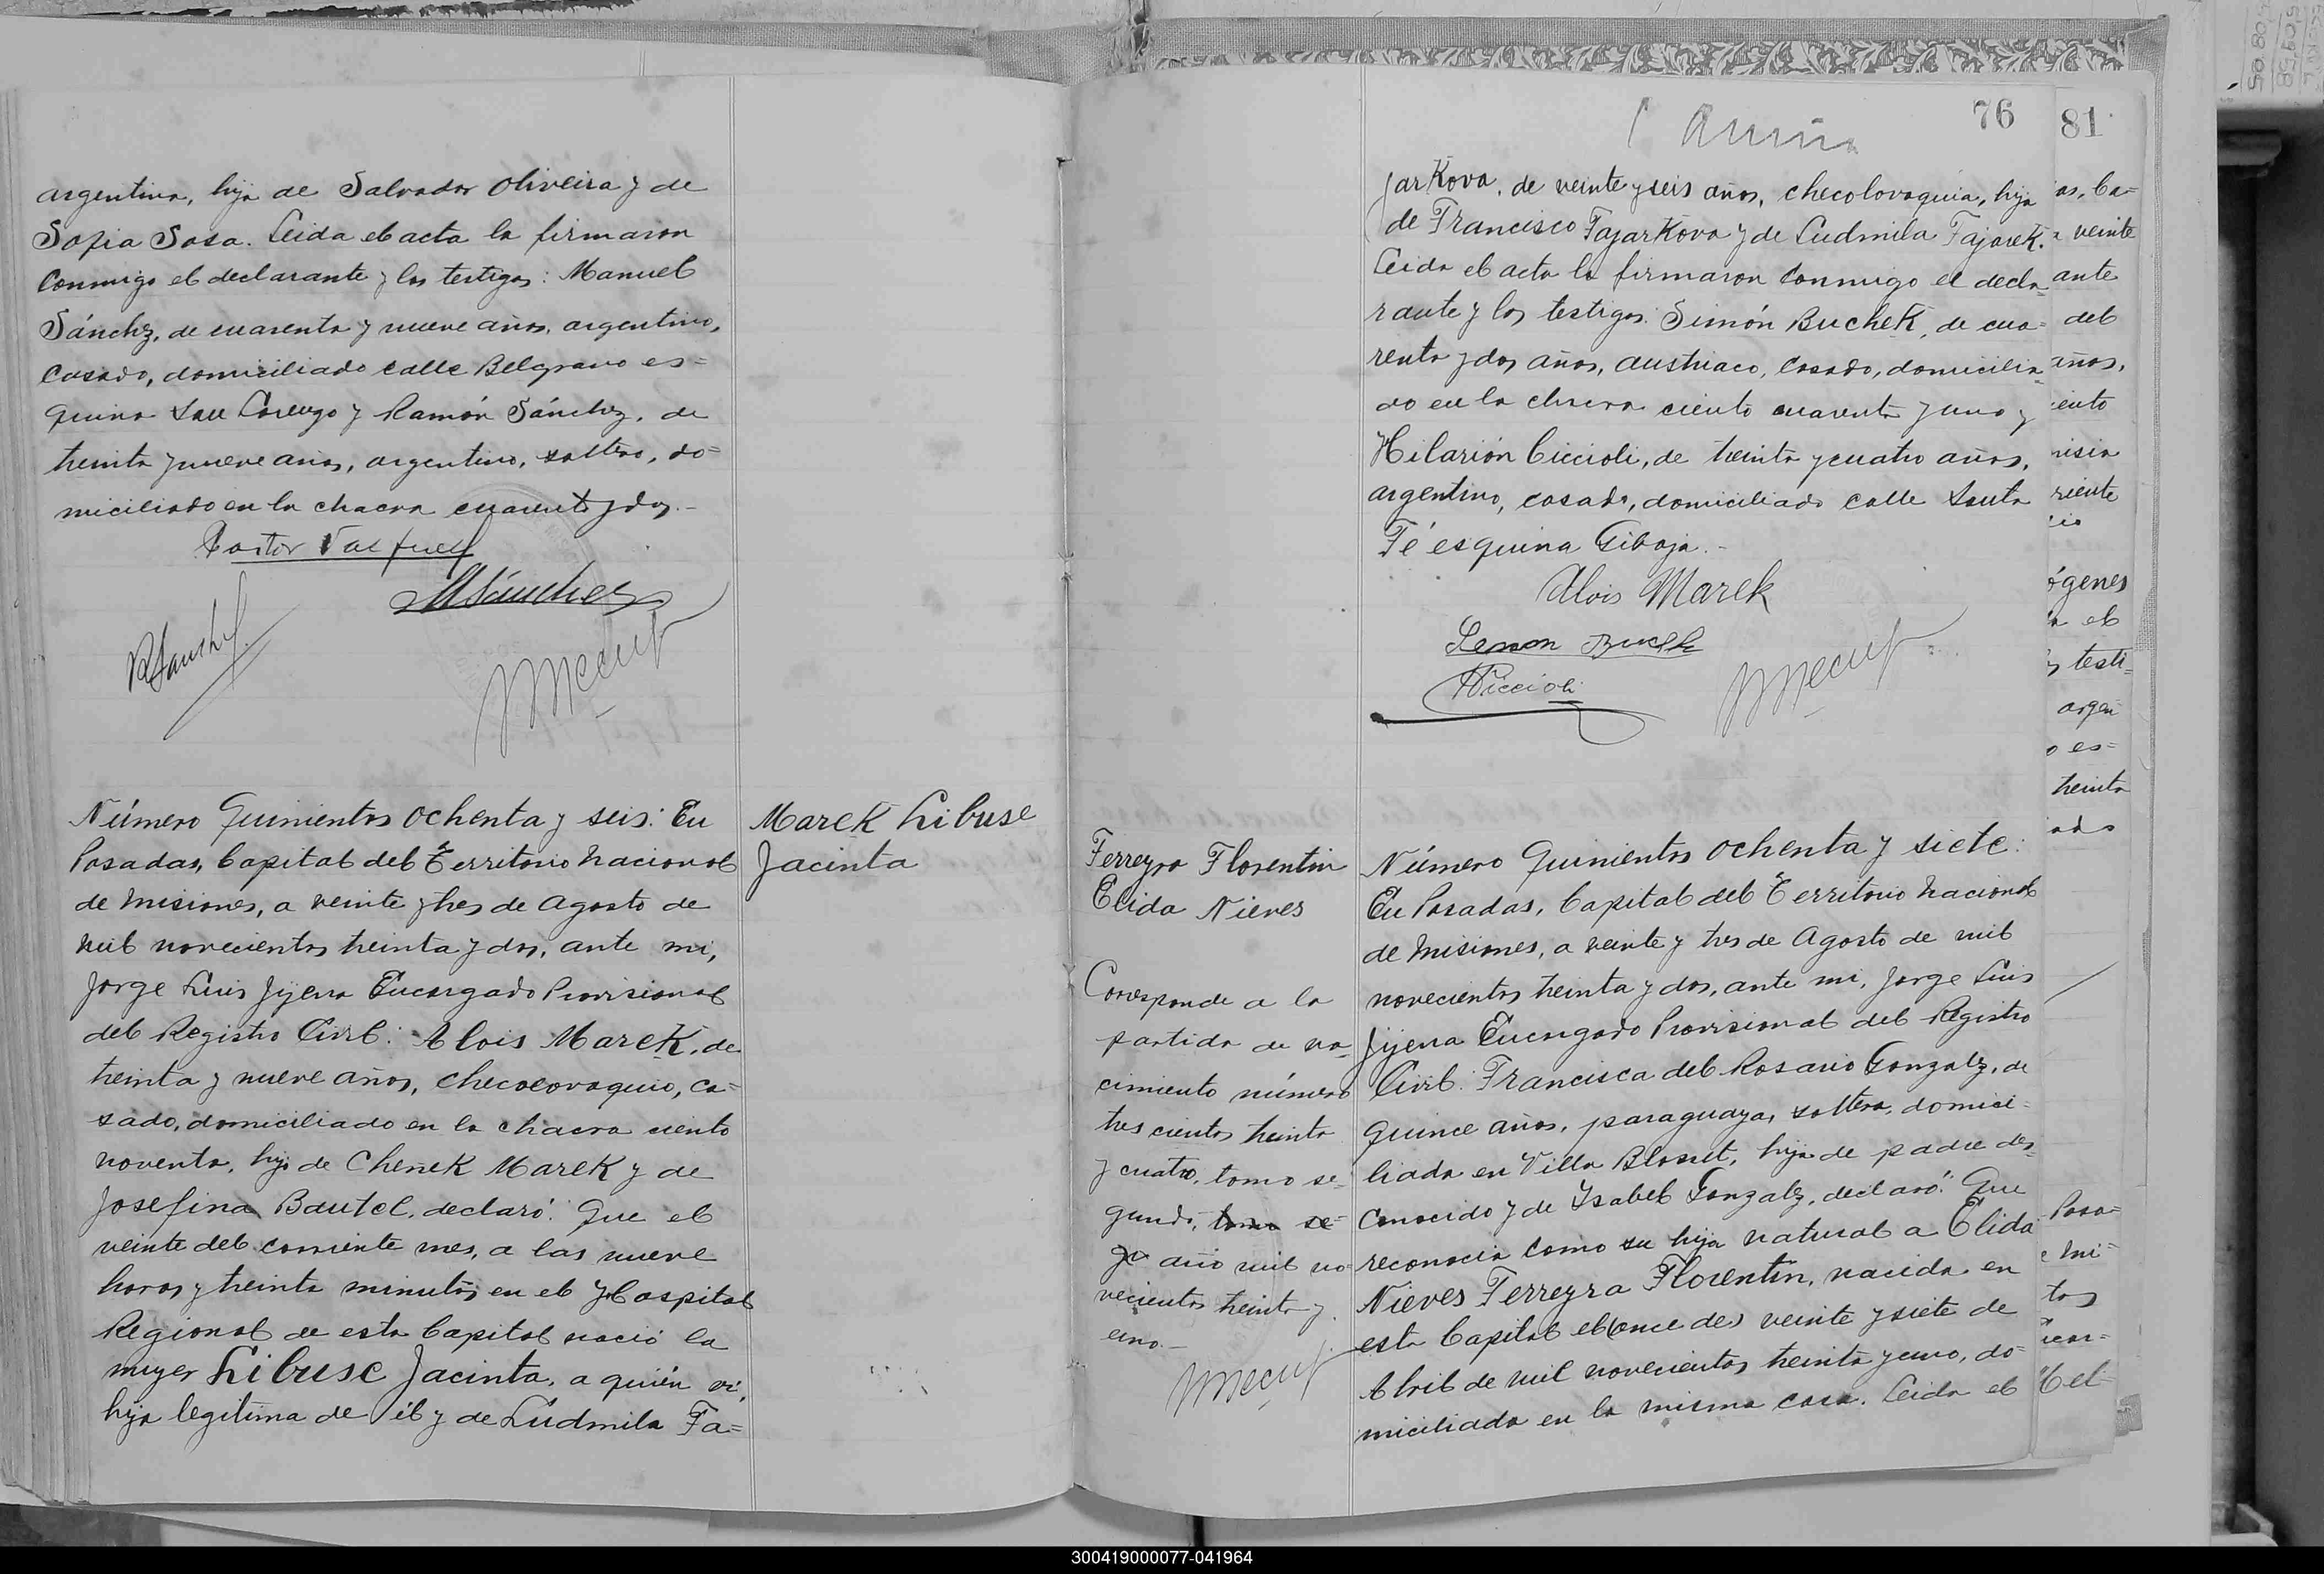 argentina, hija de Salvador Oliveira y de
Sofia Sosa. Leida el acta la firmaron
conmigo el declarante y los testigos: Manuel
Sánchz, de cuarenta y nueve años, argentino,
casado, domiciliado calle Belgrano es=
quina San Lorenzo y Ramón Sánchz, de
treinta y nueve años, argentino, soltero, do=
miciliado en la chacra cuarenta y dos.-
Pastor
MSánchez
RSanchz
Número Quinientos ochenta y seis: En
Posadas, Capital del Territorio Nacional
de Misiones, a veinte y tres de Agosto de
mil novecientos treinta y dos, ante mi,
Jorge Luis Jijena Encargado Provisional
del Registro Civil: Alois Marek, de
treinta y nueve años, checoeovaquio, ca=
sado, domiciliado en la chacra ciento
noventa, hijo de Chenek Marek y de
Josefina Bautel, declaró: Que el
veinte del corriente mes, a las nueve
horas y treinta minutos en el Hospital
Regional de esta Capital nació la
mujer Libuse Jacinta, a quién vi,
hija legitima de él y de Ludmila Fa=
Marek Libuse
Jacinta
76
jarkova, de veinte y seis años, checolovaquia, hija
de Francisco Fajarkova y de Ludmila Fajarek.
Leida el acta la firmaron conmigo el decla=
rante y los testigos: Simón Buchek, de cua=
renta y dos años, austriaco, casado, domicilia=
do en la chacra ciento cuarenta y uno y
Hilarión Ciccioli, de treinta y cuatro años,
argentino, casado, domiciliado calle Santa
Fé esquina Giboja.-
Alois Marek
HCiccioli
Ferreyra Florentin
Elida Nieves
Corresponde a la
partida de na=
cimiento número
tres cientos treinta
y cuatro, tomo se=
gundo, tomo se=
gu año mil no=
vecientos treinta y
uno.-
Número Quinientos ochenta y siete:
En Posadas, Capital del Territorio Nacional
de Misiones, a veinte y tres de Agosto de mil
novecientos treinta y dos, ante mi, Jorge Luis
Jijena Encargado Provisional del Registro
Civil: Francisca del Rosario Gonzalz, de
quince años, paraguaya, soltera, domici=
liada en Villa Blosset, hija de padre des=
conocido y de Ysabel Gonzalz, declaró: Que
reconocia como su hija natural a Elida
Nieves Ferreyra Florentin, nacida en
esta Capital el (once de) veinte y siete de
Abril de mil novecientos treinta y uno, do=
miciliada en la misma casa. Leida el
81
as, ca=
veinte
ante
del
años,
ento
risia
riente
ógenes
a el
testi=
argen
o es=
treinta
ado
Posa=
e Mi=
tos
300419000077-041964